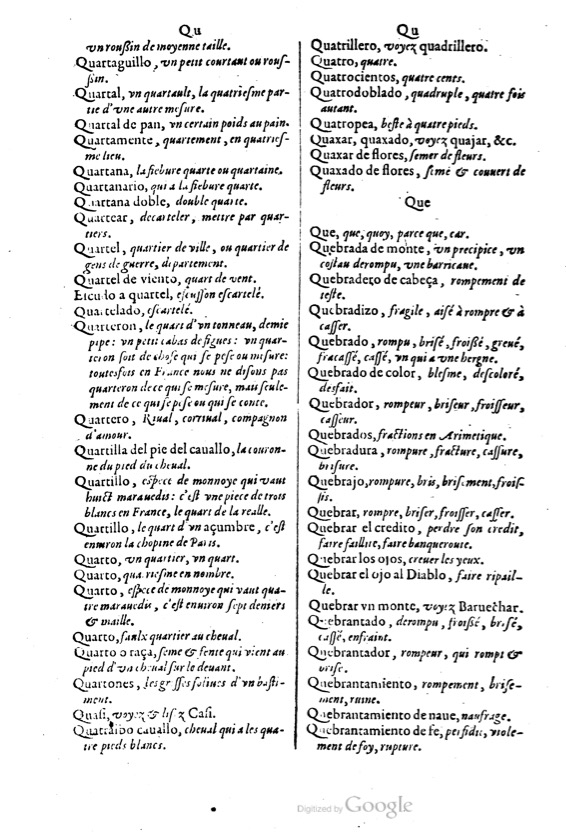 Qu
vn roußin de moyenne taille.
Quartaguillo, vn petit courtaut ou rous-
ßin.
Quartal, vn quartault, la quatriesme par-
tie d'vne autre mesure.
Quartal de pan, vn certain poids au pain.
Quartamente, quartement, en quatries-
me lieu.
Quartana, la fiebure quarte ou quartaine.
Quartanario, qui a la fiebure quarte.
Quartana doble, double quarte.
Quartear, decarteler, mettre par quar-
tiers.
Quartel, quartier de ville, ou quartier de
gens de guerre, departement.
Quartel de viento, quart de vent.
Escudo a quartel, escusson escartelé.
Quartelado, escartelé.
Quarteron, le quart d'vn tonneau, demie
pipe: vn petit cabas de figues: vn quar-
teron soit de chose qui se pese ou mesure:
toutesfois en France nous ne disons pas
quarteron de ce qui se mesure, mais seule-
ment de ce qui se pese ou qui se conte.
Quartero, Riual, corriual, compagnon
d'amour.
Quartilla del pie del cauallo, la couron-
ne du pied du cheual.
Quartillo, espece de monnoye qui vaut
huict marauedis: c'est vne piece de trois
blancs en France, le quart de la realle.
Quartillo, le quart d'vn açumbre, c'est
enuiron la chopine de Paris.
Quarto, vn quartier, vn quart.
Quarto, quatriesme en nombre.
Quarto, espece de monnoye qui vaut qua-
tre marauedis, c'est enuiron sept deniers
& maille.
Quarto, faulx quartier au cheual.
Quarto o raça, seme & fente qui vient au
pied d'vn cheual sur le deuant.
Quartones, les grosses soliues d'vn basti-
ment.
Quasi, voyez & lisez Casi.
Quatraibo cauallo, cheual qui a les qua-
tre pieds blancs.
Qu
Quatrillero, voyez quadrillero.
Quatro, quatre.
Quatrocientos, quatre cents.
Quatrodoblado, quadruple, quatre fois
autant.
Quatropea, beste à quatre pieds.
Quaxar, quaxado, voyez quajar, &c.
Quaxar de flores, semer de fleurs.
Quaxado de flores, semé & couuert de
fleurs.
Que
Que, que, quoy, parce que, car.
Quebrada de monte, vn precipice, vn
costau derompu, vne barricaue.
Quebradero de cabeça, rompement de
teste.
Quebradizo, fragile, aisé à rompre & à
casser.
Quebrado, rompu, brisé, froißé, greué,
fracassé, cassé, vn qui a vne hergne.
Quebrado de color, blesme, descoloré,
desfait.
Quebrador, rompeur, briseur, froisseur,
casseur.
Quebrados, fractions en Arimetique.
Quebradura, rompure, fracture, cassure,
brisure.
Quebrajo, rompure, bris, brisement, frois-
sis.
Quebrar, rompre, briser, froisser, casser.
Quebrar el credito, perdre son credit,
faire faillite, faire banqueroute.
Quebrar los ojos, creuer les yeux.
Quebrar el ojo al Diablo, faire ripail-
le.
Quebrar vn monte, voyez Baruechar.
Quebrantado, derompu, froißé, brisé,
cassé, enfraint.
Quebrantador, rompeur, qui rompt &
brise.
Quebrantamiento, rompement, brise-
ment, ruine.
Quebrantamiento de naue, naufrage.
Quebrantamiento de fe, perfidie, viole-
ment de foy, rupture.
Digitized by Google